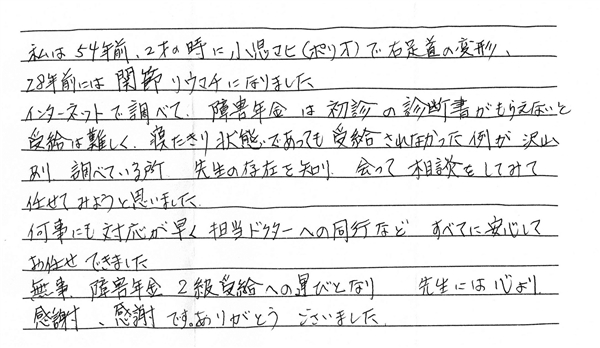 私は54年前、2才の時に小児マヒ(ポリオ)で右足首の変形、
28年前には関節リウマチになりました
インターネットで調べて、障害年金は初診の診断書がもらえないと
受給は難しく、寝たきり状態であっても受給されなかった例が沢山
あり 調べている所 先生の存在を知り、会って相談をしてみて
任せてみようと思いました
何事にも対応が早く担当ドクターへの同行など すべてに安心して
お任せできました
無事、障害年金2級受給への運びとなり 先生には心より
感謝、感謝です。ありがとうございました